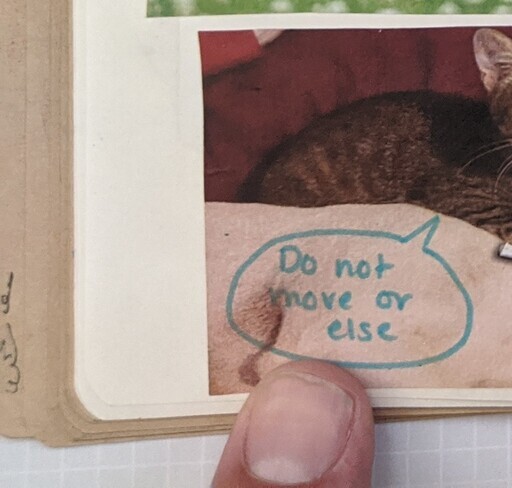 Do not
move or
else